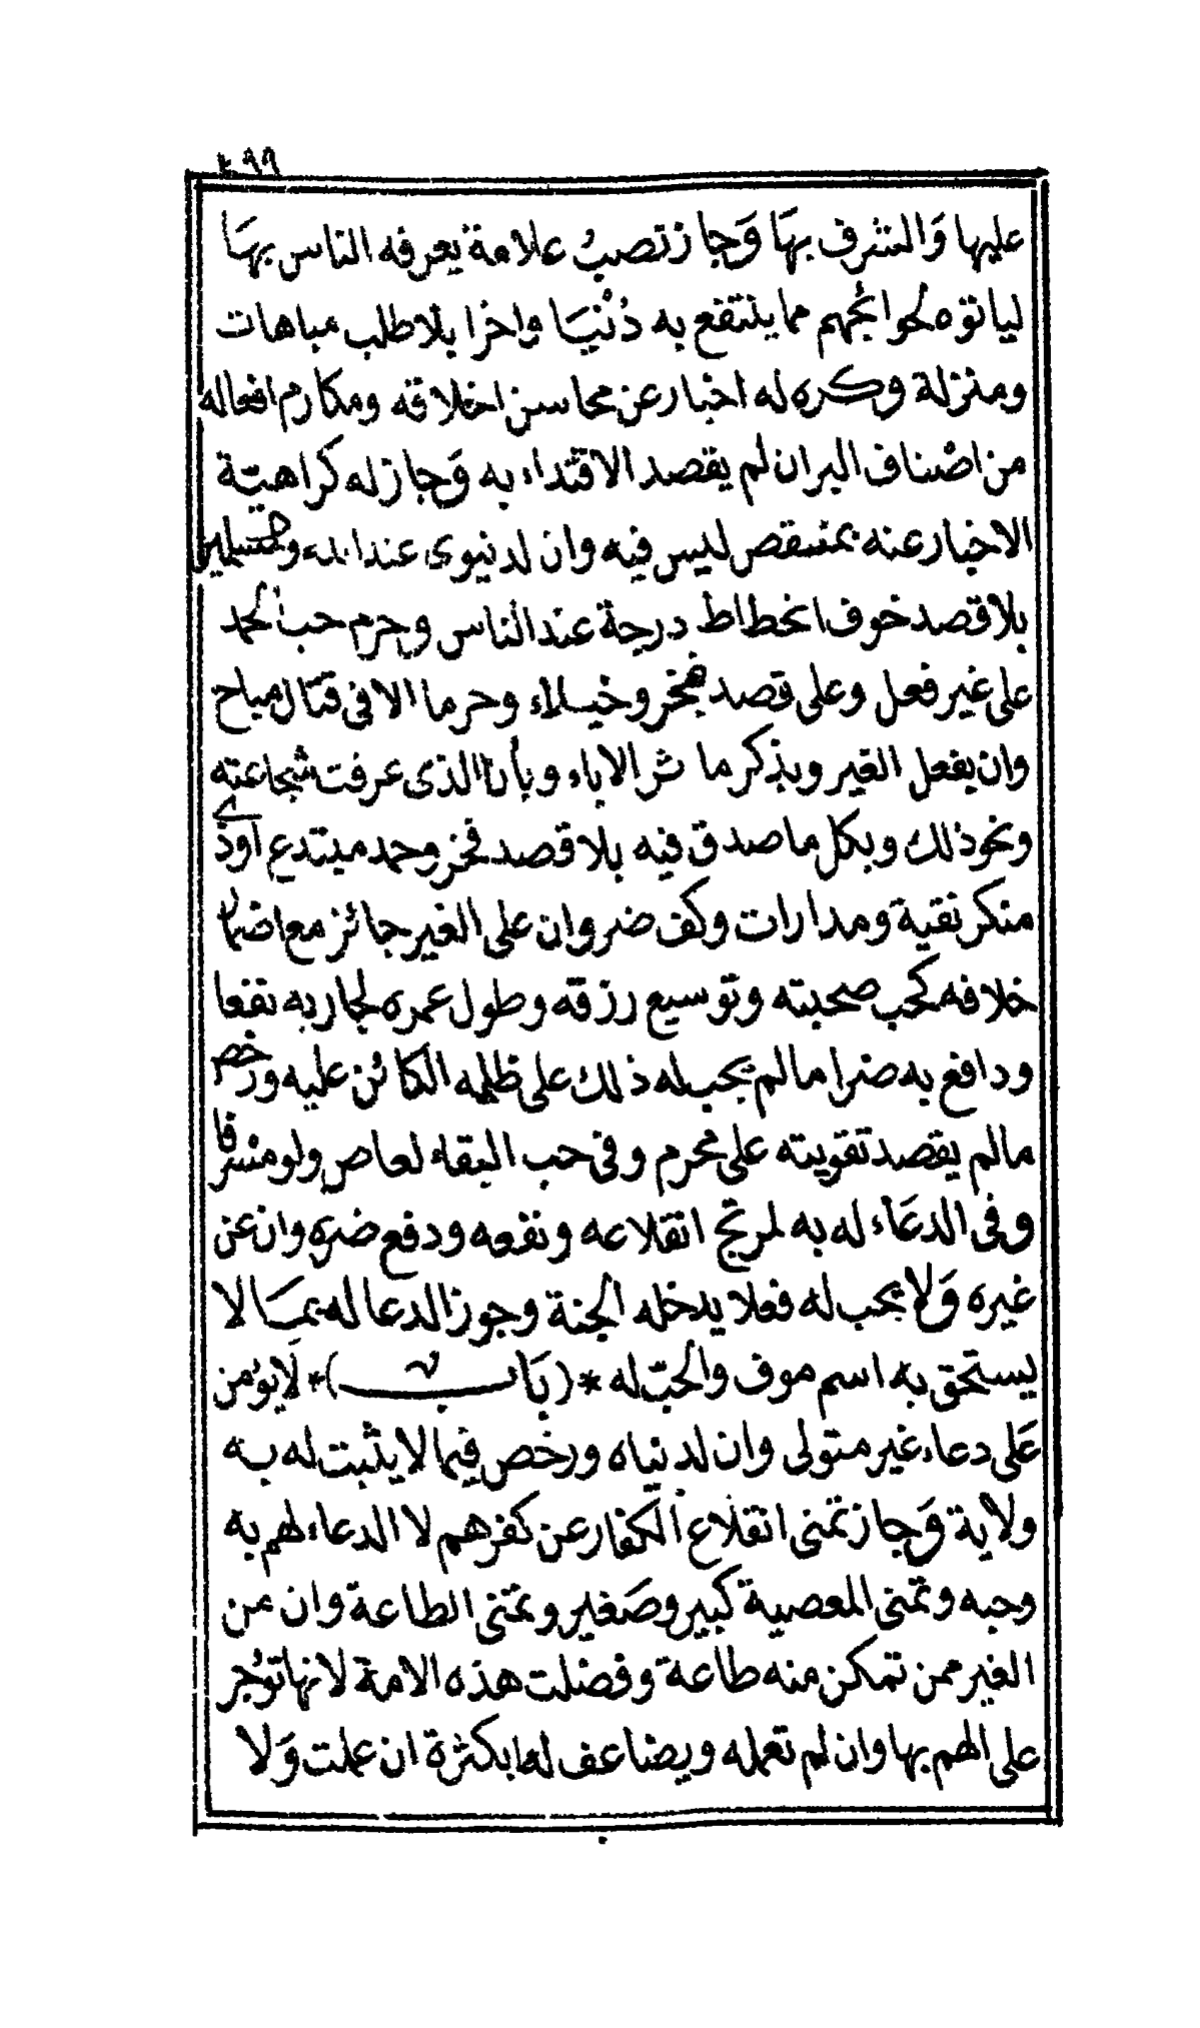 ٤٩٩
عليها وَالتشرف بهَا وَجاز تصبُ علامة يعرفه الناس بهَا
لياتوه لحوائجهم مما ينتفع به دُنْيَا واخرا بلا طلب مباهات
ومنزلة وكره له اخبار عن محاسن اخلاقه ومكارم افعاله
من اصْناف البر ان لم يقصد الاقتداء به وَجاز له كراهيّة
الاخبار عنه بمنقص ليس فيه وان لدنيوى عند الله والمسلمين
بلا قصد خوف انحطاط درجة عند الناس وحرم حب الحمد
على غير فعل وعلى قصد فخر وخيلاء وحرما الا في قتال مباح
وان بفعل الغير وبذكر ماثر الاباء وبأنا الذى عرفت شجاعته
ونحو ذلك وبكل ما صدق فيه بلا قصد فخر وحمد مبتدع اوذى
منكر تقية ومدارات وكف ضر وان على الغير جائز مع اضمار
خلافه كحب صحبته وتوسيع رزقه وطول عمره لجار به نفعا
ودافع به ضرا ما لم يحب له ذلك على ظلمه الكائن عليه ورخص
ما لم يقصد تقويته على محرم وفى حب البقاء لعاص ولو مشرقا
وفى الدعَاء له به لمرتج انقلاعه ونفعه ودفع ضره وان عن
غيره وَلا يحب له فعلا يدخله الجنة وجوز الدعا له بمَا لا
يستحق به اسم موف والحبّ له *(بَاب)* لَا يؤمن
عَلى دعاء غير متولى وان لدنياه ورخص فيما لا يثبت له به
ولاية وَجاز تمنى انقلاع الكفار عن كفرهم لا الدعاء لهم به
وحبه وتمنى المعصية كبير وصَغير وتمنى الطاعة وان من
الغير ممن تمكن منه طاعة وفضلت هذه الامة لانها تؤجر
على الهم بها وان لم تعمله ويضاعف لها بكثرة ان عملت وَلا